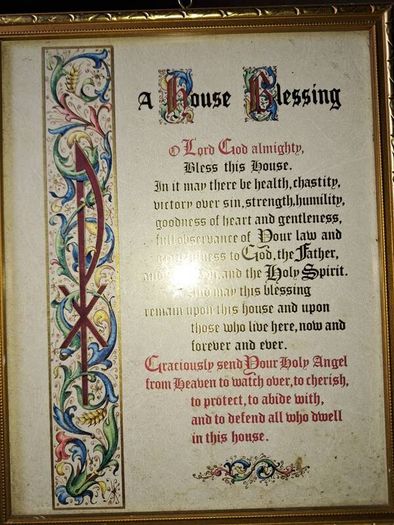 A House Blessing
O Lord God almighty,
Bless this House.
In it may there be health, chastity,
victory over sin, strength, humility,
goodness of heart and gentleness,
full observance of Your law and
to God, the Father,
and the Holy Spirit.
And may this blessing
remain upon this house and upon
those who live here, now and
forever and ever.
Graciously send Your Holy Angel
from Heaven to watch over, to cherish,
to protect, to abide with,
and to defend all who dwell
in this house.